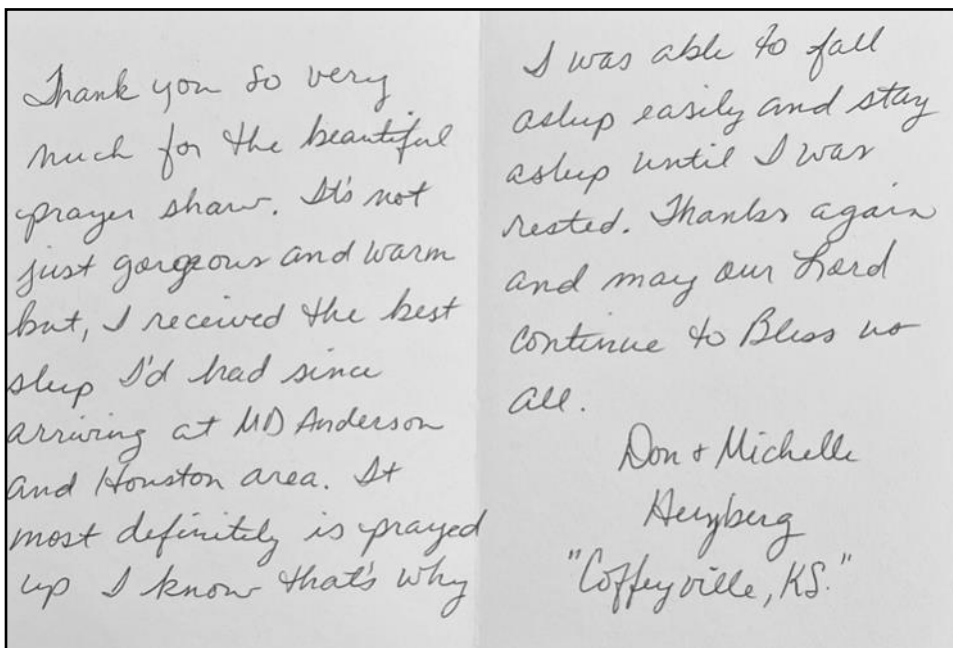 Thank you so very
much for the beautiful
prayer shawl. It's not
just gorgeous and warm
but, I received the best
sleep I'd had since
arriving at MD Anderson
and Houston area. It
most definitely is prayed
up I know that's why
I was able to fall
asleep easily and stay
asleep until I was
rested. Thanks again
and may our Lord
continue to Bless us
all.
Don & Michelle
Herzberg
"Coffeyville, KS."